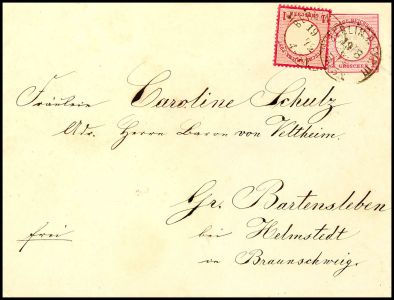 GROSCHEN
Fräulein Caroline Schulz
Adr. Herrn Baron von Veltheim.
Gr. Bartensleben
frei
bei Helmstedt
in Braunschweig.